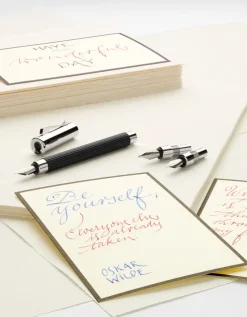 HAVE
a
wonderful
DAY
Be
yourself,
everyone else
is already
taken
OSKAR
WILDE